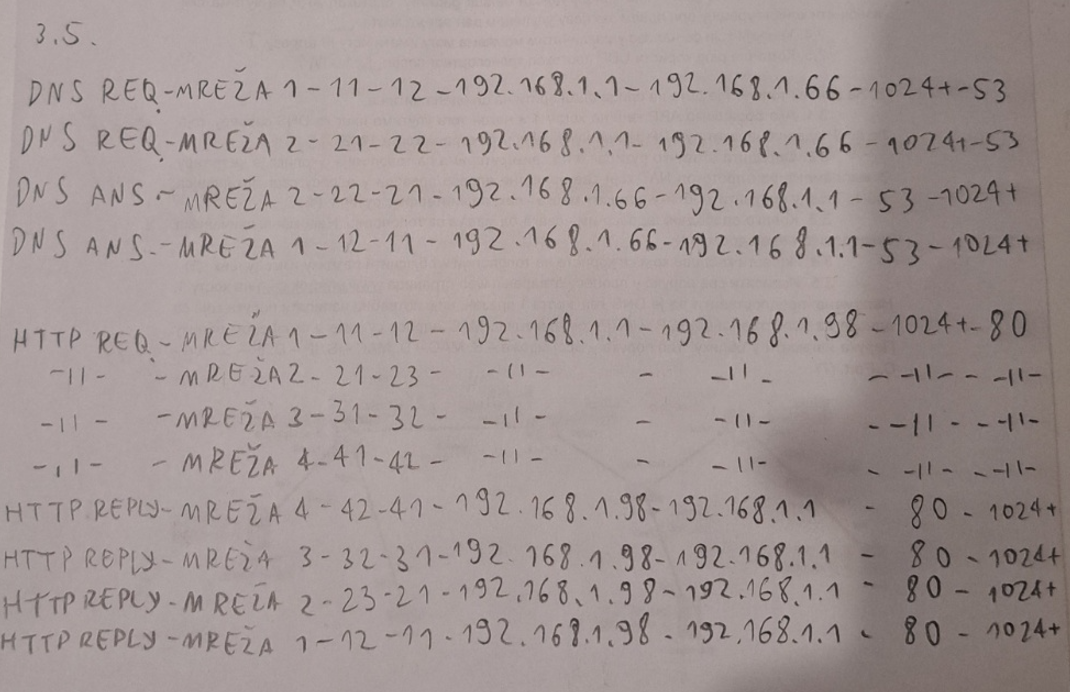 3.5.
DNS REQ.-MREŽA 1-11-12-192.168.1.1-192.168.1.66-1024+-53
DNS REQ.-MREŽA 2-21-22-192.168.1.1-192.168.1.66-1024+-53
DNS ANS.-MREŽA 2-22-21-192.168.1.66-192.168.1.1-53-1024+
DNS ANS.-MREŽA 1-12-11-192.168.1.66-192.168.1.1-53-1024+
HTTP REQ.-MREŽA 1-11-12-192.168.1.1-192.168.1.98-1024+-80
-11- -MREŽA 2-21-23- -11- - -11- - -11- - -11-
-11- -MREŽA 3-31-32- -11- - -11- - -11- - -11-
-11- -MREŽA 4-41-42- -11- - -11- - -11- - -11-
HTTP REPLY-MREŽA 4-42-41-192.168.1.98-192.168.1.1 - 80-1024+
HTTP REPLY-MREŽA 3-32-31-192.168.1.98-192.168.1.1 - 80-1024+
HTTP REPLY-MREŽA 2-23-21-192.168.1.98-192.168.1.1 - 80-1024+
HTTP REPLY-MREŽA 1-12-11-192.168.1.98-192.168.1.1 - 80-1024+